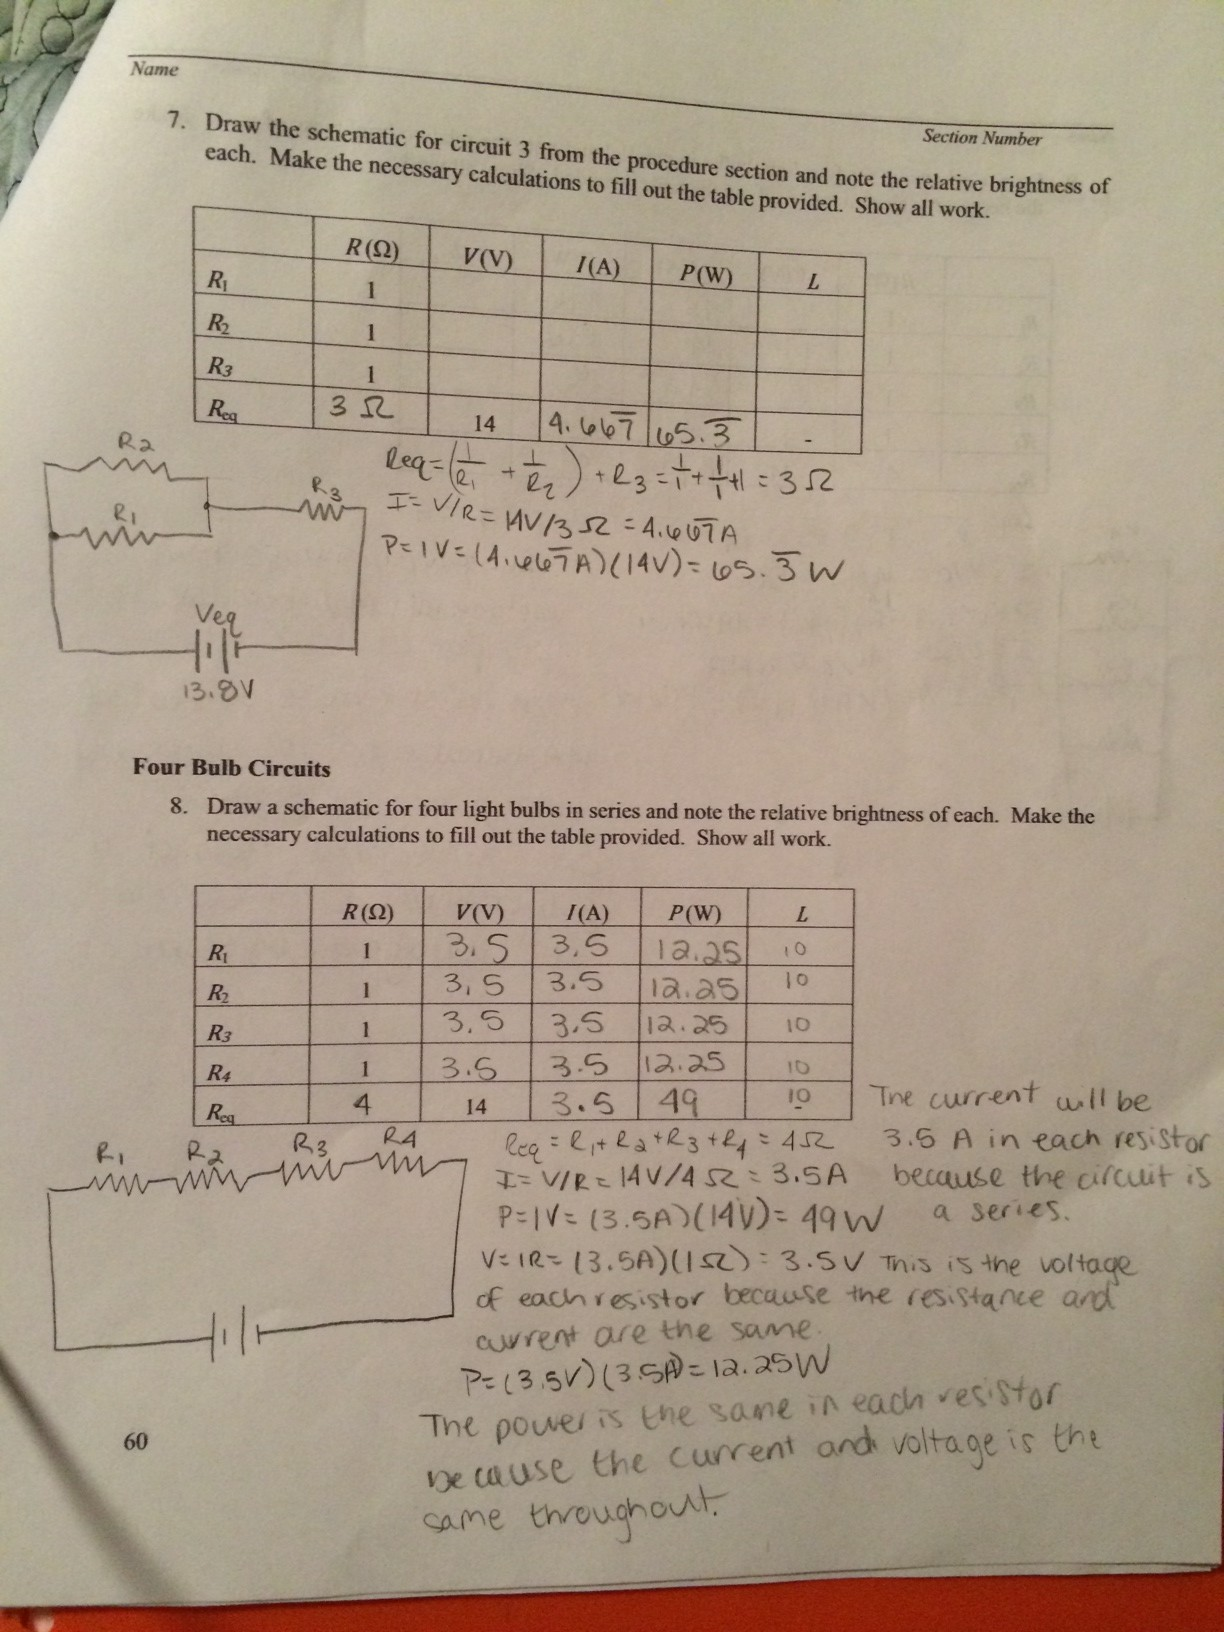 Name
Section Number
7. Draw the schematic for circuit 3 from the procedure section and note the relative brightness of
each. Make the necessary calculations to fill out the table provided. Show all work.
R(Ω) V(V) I(A) P(W) L
R1 1
R2 1
R3 1
Req 3 Ω 14 4.667̅ 65.3̅ -
R2
R1
R3
Veq
13.8V
Req=(1/R1 + 1/R2) + R3 = 1/1 + 1/1 + 1 = 3Ω
I = V/R = 14V/3Ω = 4.667̅A
P = IV = (4.667̅A)(14V) = 65.3̅ W
Four Bulb Circuits
8. Draw a schematic for four light bulbs in series and note the relative brightness of each. Make the
necessary calculations to fill out the table provided. Show all work.
R(Ω) V(V) I(A) P(W) L
R1 1 3.5 3.5 12.25 10
R2 1 3.5 3.5 12.25 10
R3 1 3.5 3.5 12.25 10
R4 1 3.5 3.5 12.25 10
Req 4 14 3.5 49 10
-
R1 R2 R3 R4
Req = R1+R2+R3+R4 = 4Ω
I = V/R = 14V/4Ω = 3.5A
P=IV= (3.5A)(14V)= 49W
The current will be
3.5 A in each resistor
because the circuit is
a series.
V= IR= (3.5A)(1Ω) = 3.5V This is the voltage
of each resistor because the resistance and
current are the same.
P=(3.5V)(3.5A)=12.25W
The power is the same in each resistor
because the current and voltage is the
same throughout.
60